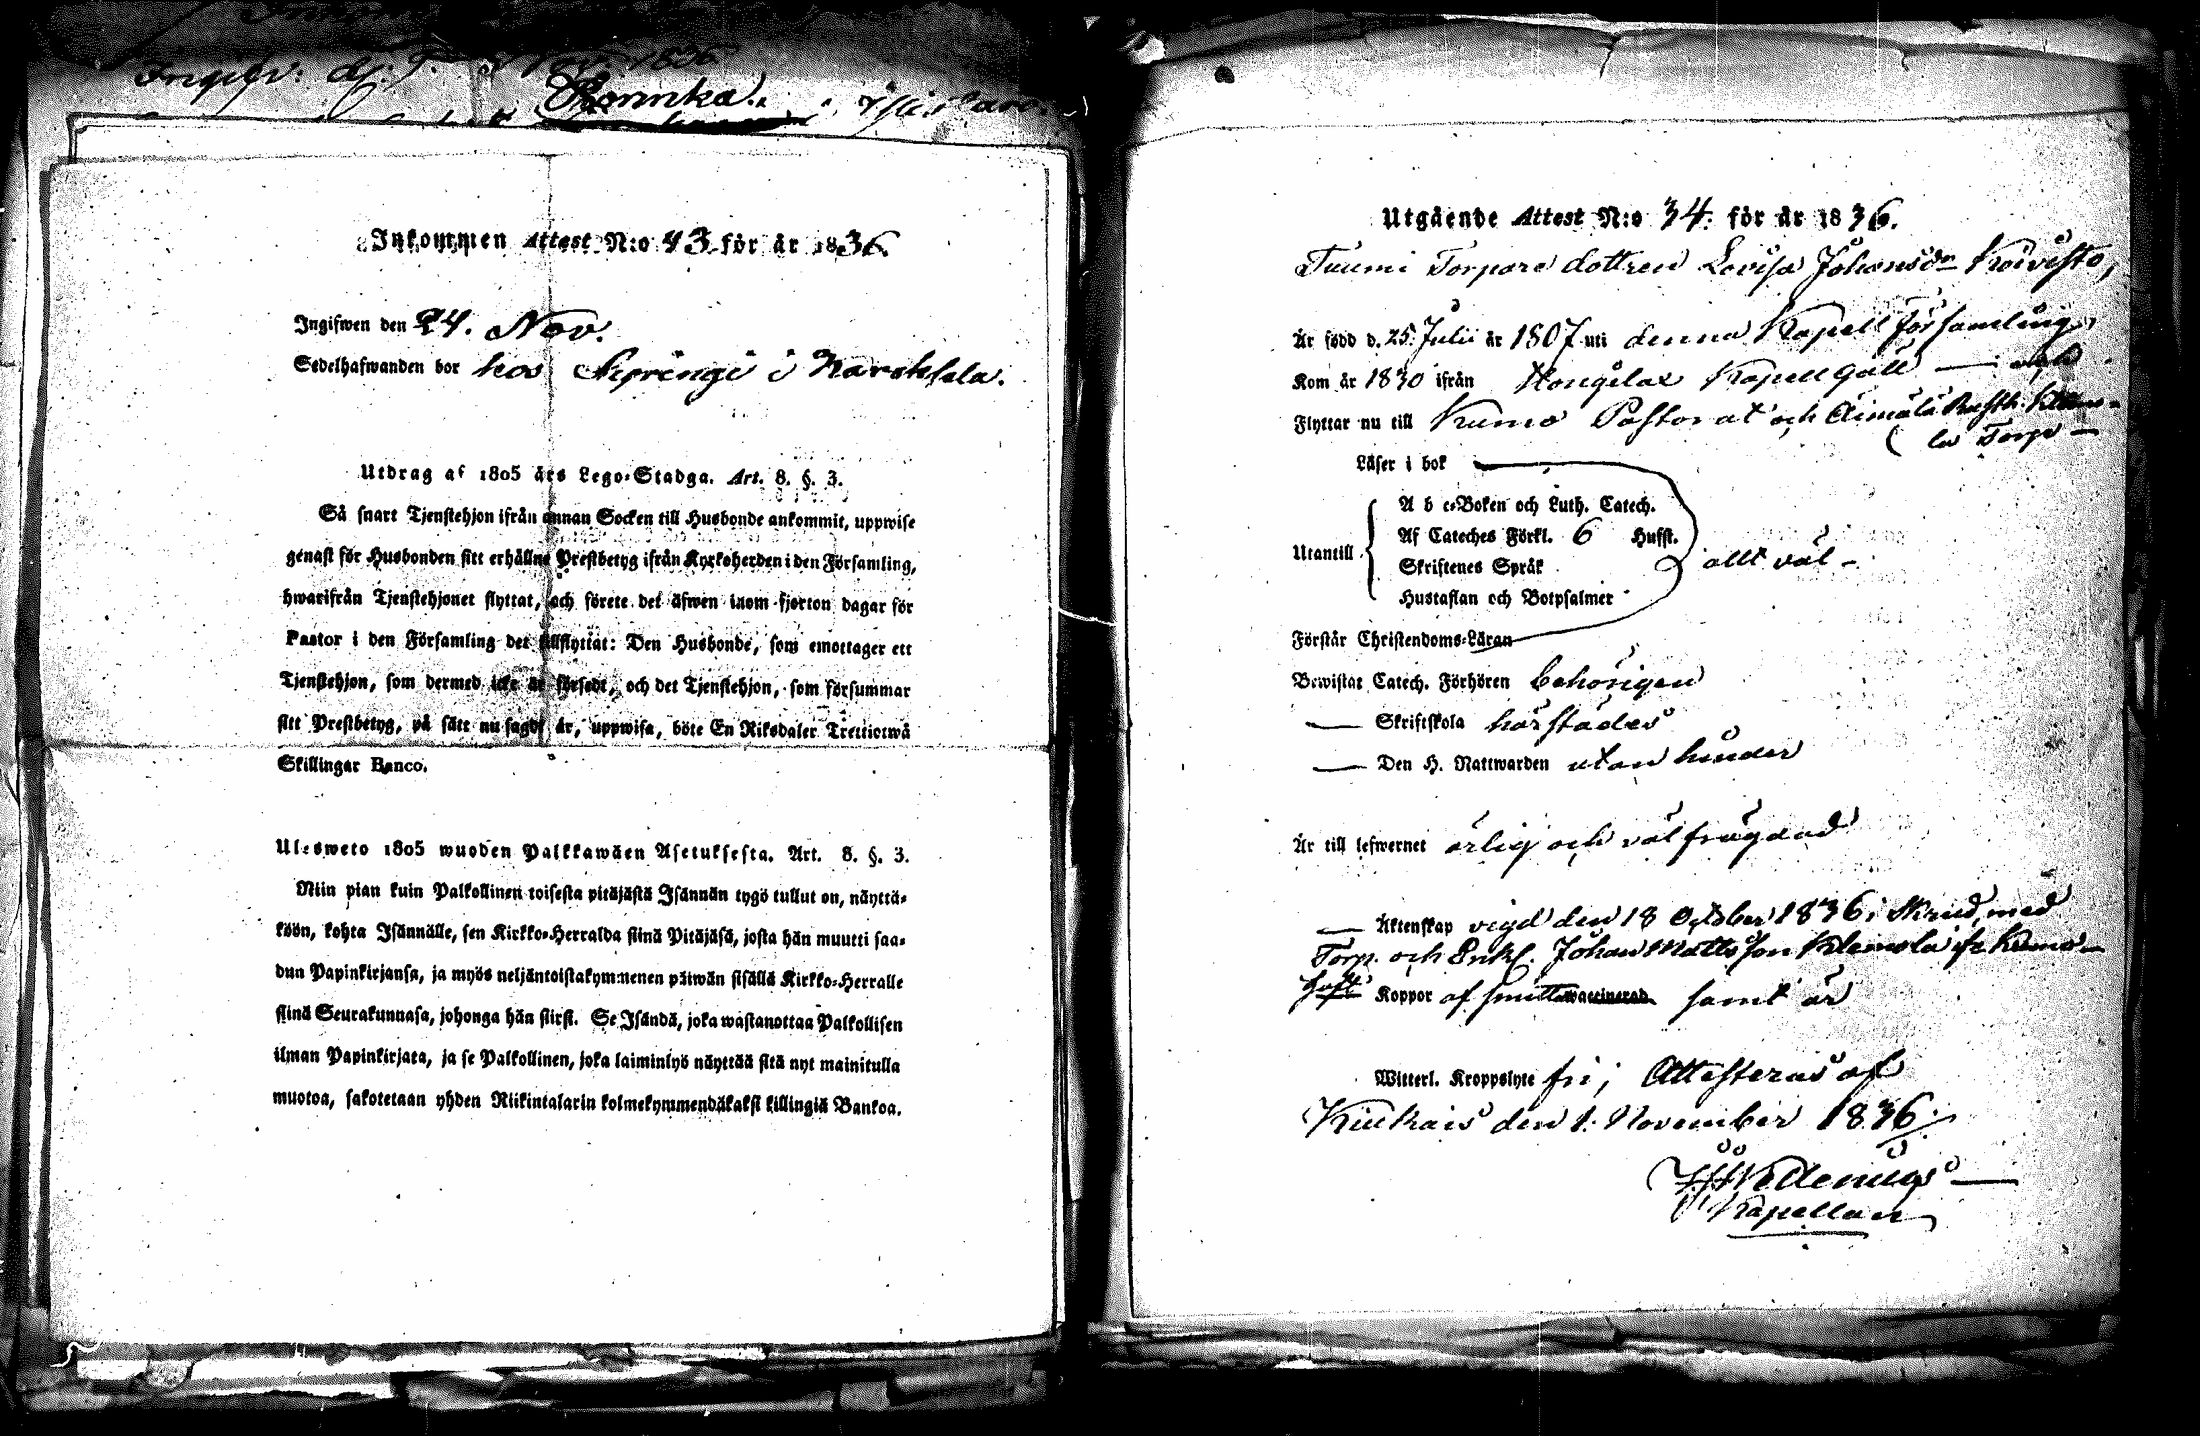 Ingifv. d. 9. Nov. 1836
Ronnka.
Inkommen Attest N:o 43 för år 1836.
Ingifwen den 24. Nov.
Sedelhafwanden bor hos Springi i Karhola.
Utdrag af 1805 års Lego-Stadga. Art. 8. §. 3.
Så snart Tjenstehjon ifrån annan Socken till Husbonde ankommit, uppwise
genast för Husbonden sitt erhållne Prestbetyg ifrån Kyrkoherden i den Församling,
hwarifrån Tjenstehjonet flyttat, och förete det äfwen inom fjorton dagar för
Pastor i den Församling det tillflyttat: Den Husbonde, som emottager ett
Tjenstehjon, som dermed icke är försedt, och det Tjenstehjon, som försummar
sitt Prestbetyg, på sätt nu sagdt är, uppwisa, böte En Riksdaler Trettiotwå
Skillingar Banco.
Ulosweto 1805 wuoden Palkkawäen Asetuksesta. Art. 8. §. 3.
Niin pian kuin Palkollinen toisesta pitäjästä Isännän tygö tullut on, näyttä-
köön, kohta Isännälle, sen Kirkko-Herralda siinä Pitäjäsä, josta hän muutti saa-
dun Papinkirjansa, ja myös neljäntoistakymmenen päiwän sisällä Kirkko-Herralle
siinä Seurakunnasa, johonga hän siirsi. Se Isändä, joka wastanottaa Palkollisen
ilman Papinkirjata, ja se Palkollinen, joka laiminlyö näyttää sitä nyt mainitulla
muotoa, sakotetaan yhden Riikintalarin kolmekymmendäkaksi killingiä Bankoa.
Utgående Attest N:o 34. för år 1836.
Tuumi Torpare dottren Lovisa Johansdr Koivisto,
Är född d. 25. Julii år 1807 uti denna Kapell församling,
Kom år 1830 ifrån Hongilax Kapell gäll — och
Flyttar nu till Kumo Pastorat och Äimälä Rusth. Klemo-
la Torp —
Läser i bok
Utantill
A b c-Boken och Luth. Catech.
Af Cateches Förkl. 6 Hufst.
Skriftenes Språk
Hustaflan och Botpsalmer
allt väl -
Förstår Christendoms-Läran
Bewistat Catech. Förhören behörigen
— Skriftskola härstädes
— Den H. Nattwarden utan hinder
Är till lefwernet ärlig och välfrägdad
— Äktenskap vigd den 18 October 1836 i Skrud, med
Torp. och Enkl. Johan Mattsson Klemola fr. Kumo —
haft Koppor af smitta waccinerad samt är
Witterl. Kroppslyte fri; Attesteras af
Kiukais den 1. November 1836.
Kapellan